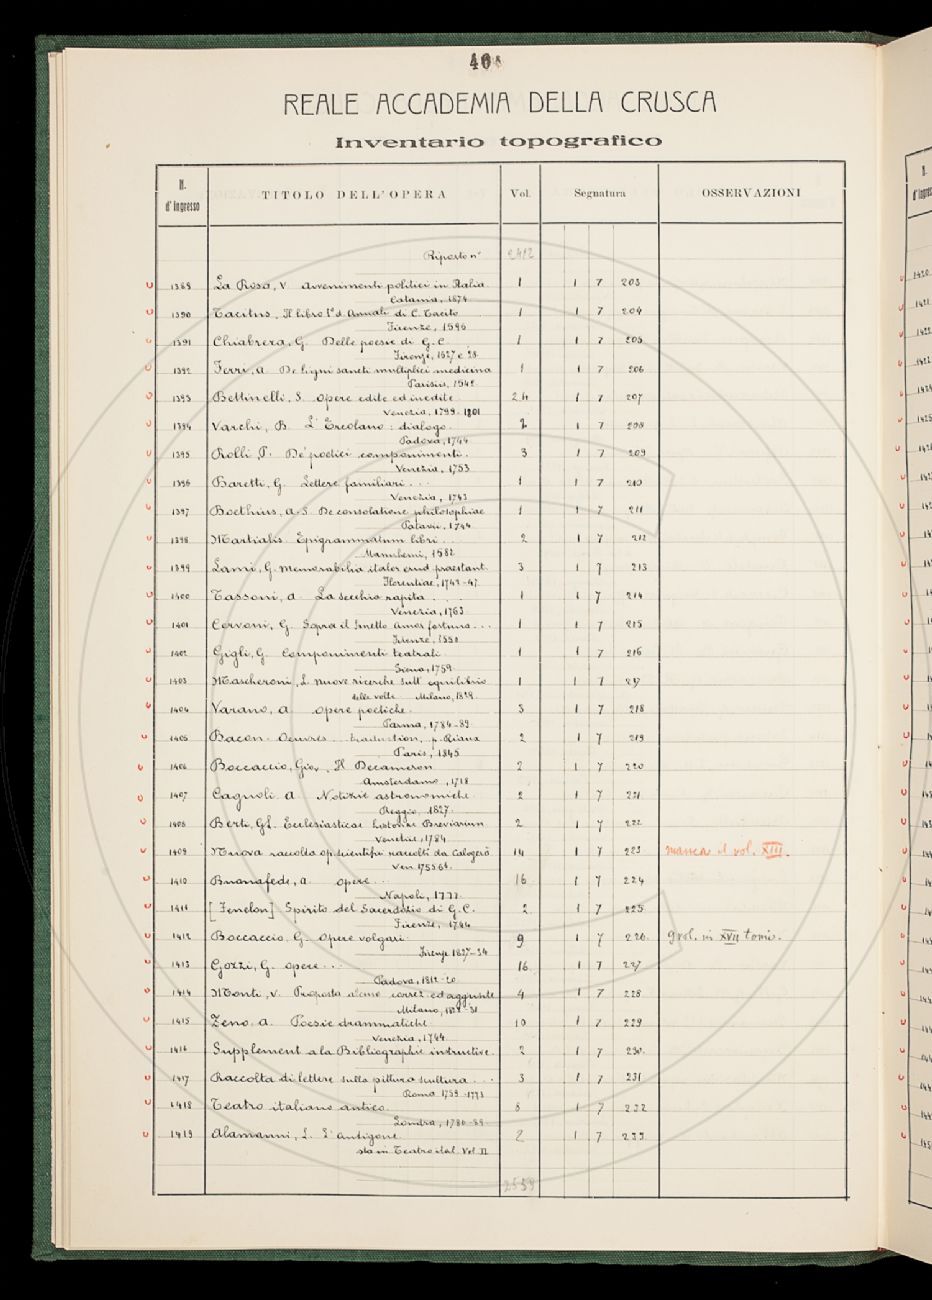 40
REALE ACCADEMIA DELLA CRUSCA
Inventario topografico
N. d'ingresso TITOLO DELL'OPERA Vol. Segnatura OSSERVAZIONI
Riporto n° 2412
1389 La Rosa, V. Avvenimenti politici in Italia 1 1 7 203
Catania, 1874
1390 Tacitus, Il libro 1° d. Annali di C. Tacito 1 1 7 204
Firenze, 1596
1391 Chiabrera, G. Delle poesie di G. C. 1 1 7 205
Firenze, 1627 e 28
1392 Ferri, A. De ligni sancti multiplici medicina 1 1 7 206
Parisiis, 1542
1393 Bettinelli, S. Opere edite ed inedite 24 1 7 207
Venezia, 1799-1801
1394 Varchi, B. L'Ercolano: dialogo. 2 1 7 208
Padova, 1744
1395 Rolli, P. De' poetici componimenti. 3 1 7 209
Venezia, 1753
1396 Baretti, G. Lettere familiari... 1 1 7 210
Venezia, 1763
1397 Boethius, A. S. De consolatione philosophiae 1 1 7 211
Patavii, 1744
1398 Martialis Epigrammatum libri.. 2 1 7 212
Mannhemi, 1782
1399 Lami, G. Memorabilia italor erud praestant. 3 1 7 213
Florentiae, 1742-47
1400 Tassoni, A. La secchia rapita... 1 1 7 214
Venezia, 1763
1401 Cervoni, G. Sopra il sonetto Amor fortuna... 1 1 7 215
Firenze, 1550
1402 Gigli, G. Componimenti teatrali 1 1 7 216
Siena, 1759
1403 Mascheroni, L. nuove ricerche sull' equilibrio 1 1 7 217
delle volte Milano, 1829.
1404 Varano, A. Opere poetiche. 3 1 7 218
Parma, 1784-89.
1405 Bacon. Oeuvres... traduction, p. Riaux 2 1 7 219
Paris, 1845
1406 Boccaccio, Giov. Il Decameron 2 1 7 220
Amsterdamo, 1718
1407 Cagnoli. A. Notizie astronomiche. 2 1 7 221
Reggio, 1827.
1408 Berti, G. L. Ecclesiasticae historiae Breviarium 2 1 7 222
Venetiis, 1784
1409 Nuova raccolta op. scientifici raccolti da Calogerà 14 1 7 223 manca il vol. XIII.
Ven. 1755 61.
1410 Buonafede, A. Opere... 16 1 7 224
Napoli, 1777
1411 [Fenelon] Spirito del Sacerdozio di G. C. 2 1 7 225
Firenze, 1744
1412 Boccaccio, G. Opere volgari. 9 1 7 226. 9 vol. in XVII tomi.
Firenze 1827-34
1413 Gozzi, G. Opere... 16 1 7 227
Padova, 1818-20
1414 Monti, V. Proposta alcune correz ed aggiunte 4 1 7 228
Milano, 1828-31
1415 Zeno. A. Poesie drammatiche 10 1 7 229
Venezia, 1744
1416 Supplement a la Bibliographie instructive. 2 1 7 230.
1417 Raccolta di lettere sulla pittura scultura... 3 1 7 231
Roma 1759-1773
1418 Teatro italiano antico. 8 1 7 232
Londra, 1786-89
1419 Alamanni, L. L'antigone 2 1 7 233
sta in Teatro ital Vol II
2559